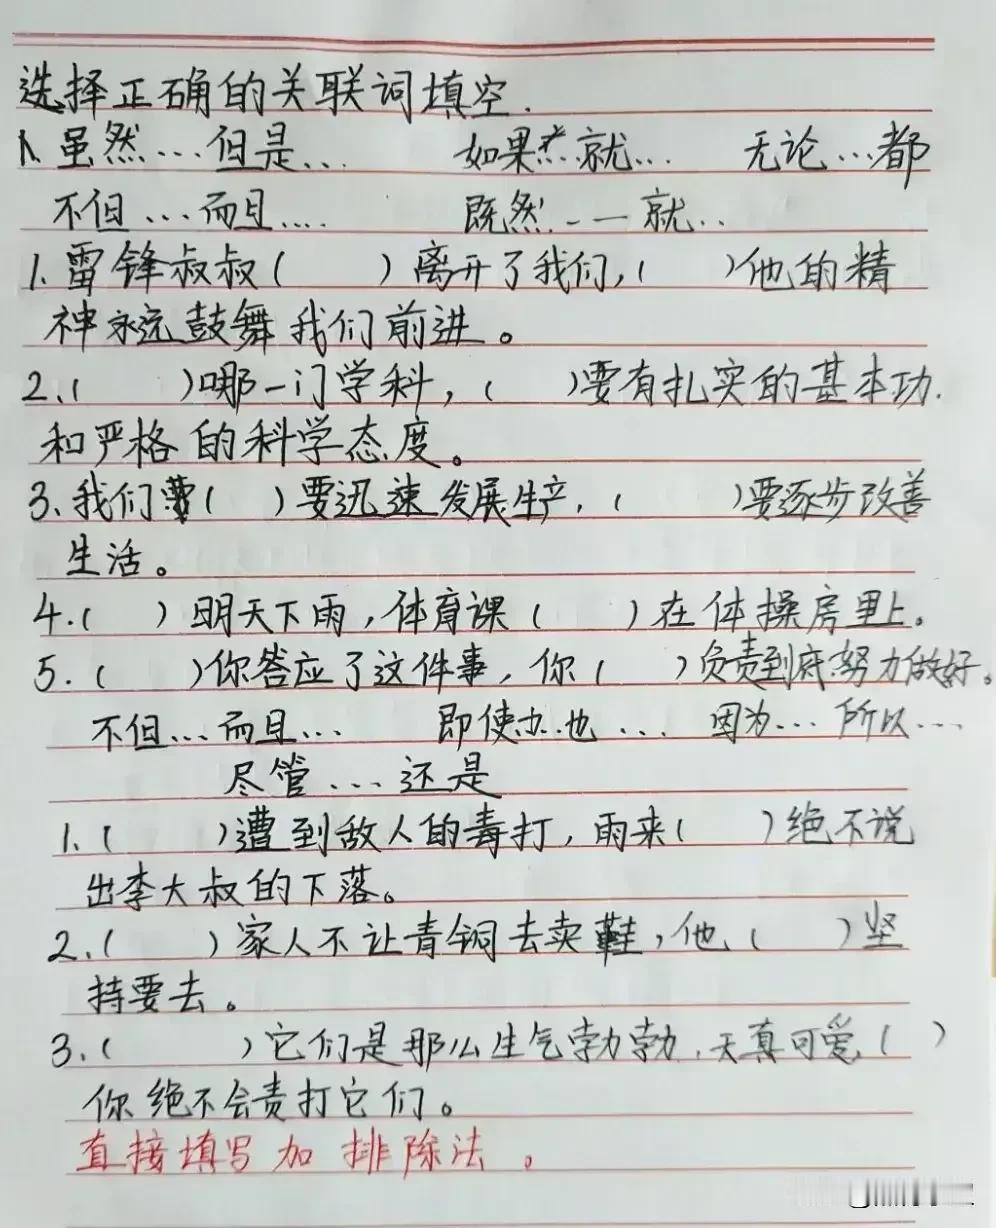 选择正确的关联词填空.
1. 虽然...但是... 如果...就... 无论...都
不但...而且.... 既然...就...
1.雷锋叔叔(  )离开了我们,(  )他的精
神永远鼓舞我们前进。
2.(  )哪一门学科,(  )要有扎实的基本功.
和严格的科学态度。
3.我们(  )要迅速发展生产,(  )要逐步改善
生活。
4.(  )明天下雨,体育课(  )在体操房里上。
5.(  )你答应了这件事,你(  )负责到底努力做好。
不但...而且... 即使...也... 因为...所以...
尽管...还是
1.(  )遭到敌人的毒打,雨来(  )绝不说
出李大叔的下落。
2.(  )家人不让青铜去卖鞋,他(  )坚
持要去。
3.(  )它们是那么生气勃勃.天真可爱(  )
你绝不会责打它们。
直接填写加排除法。